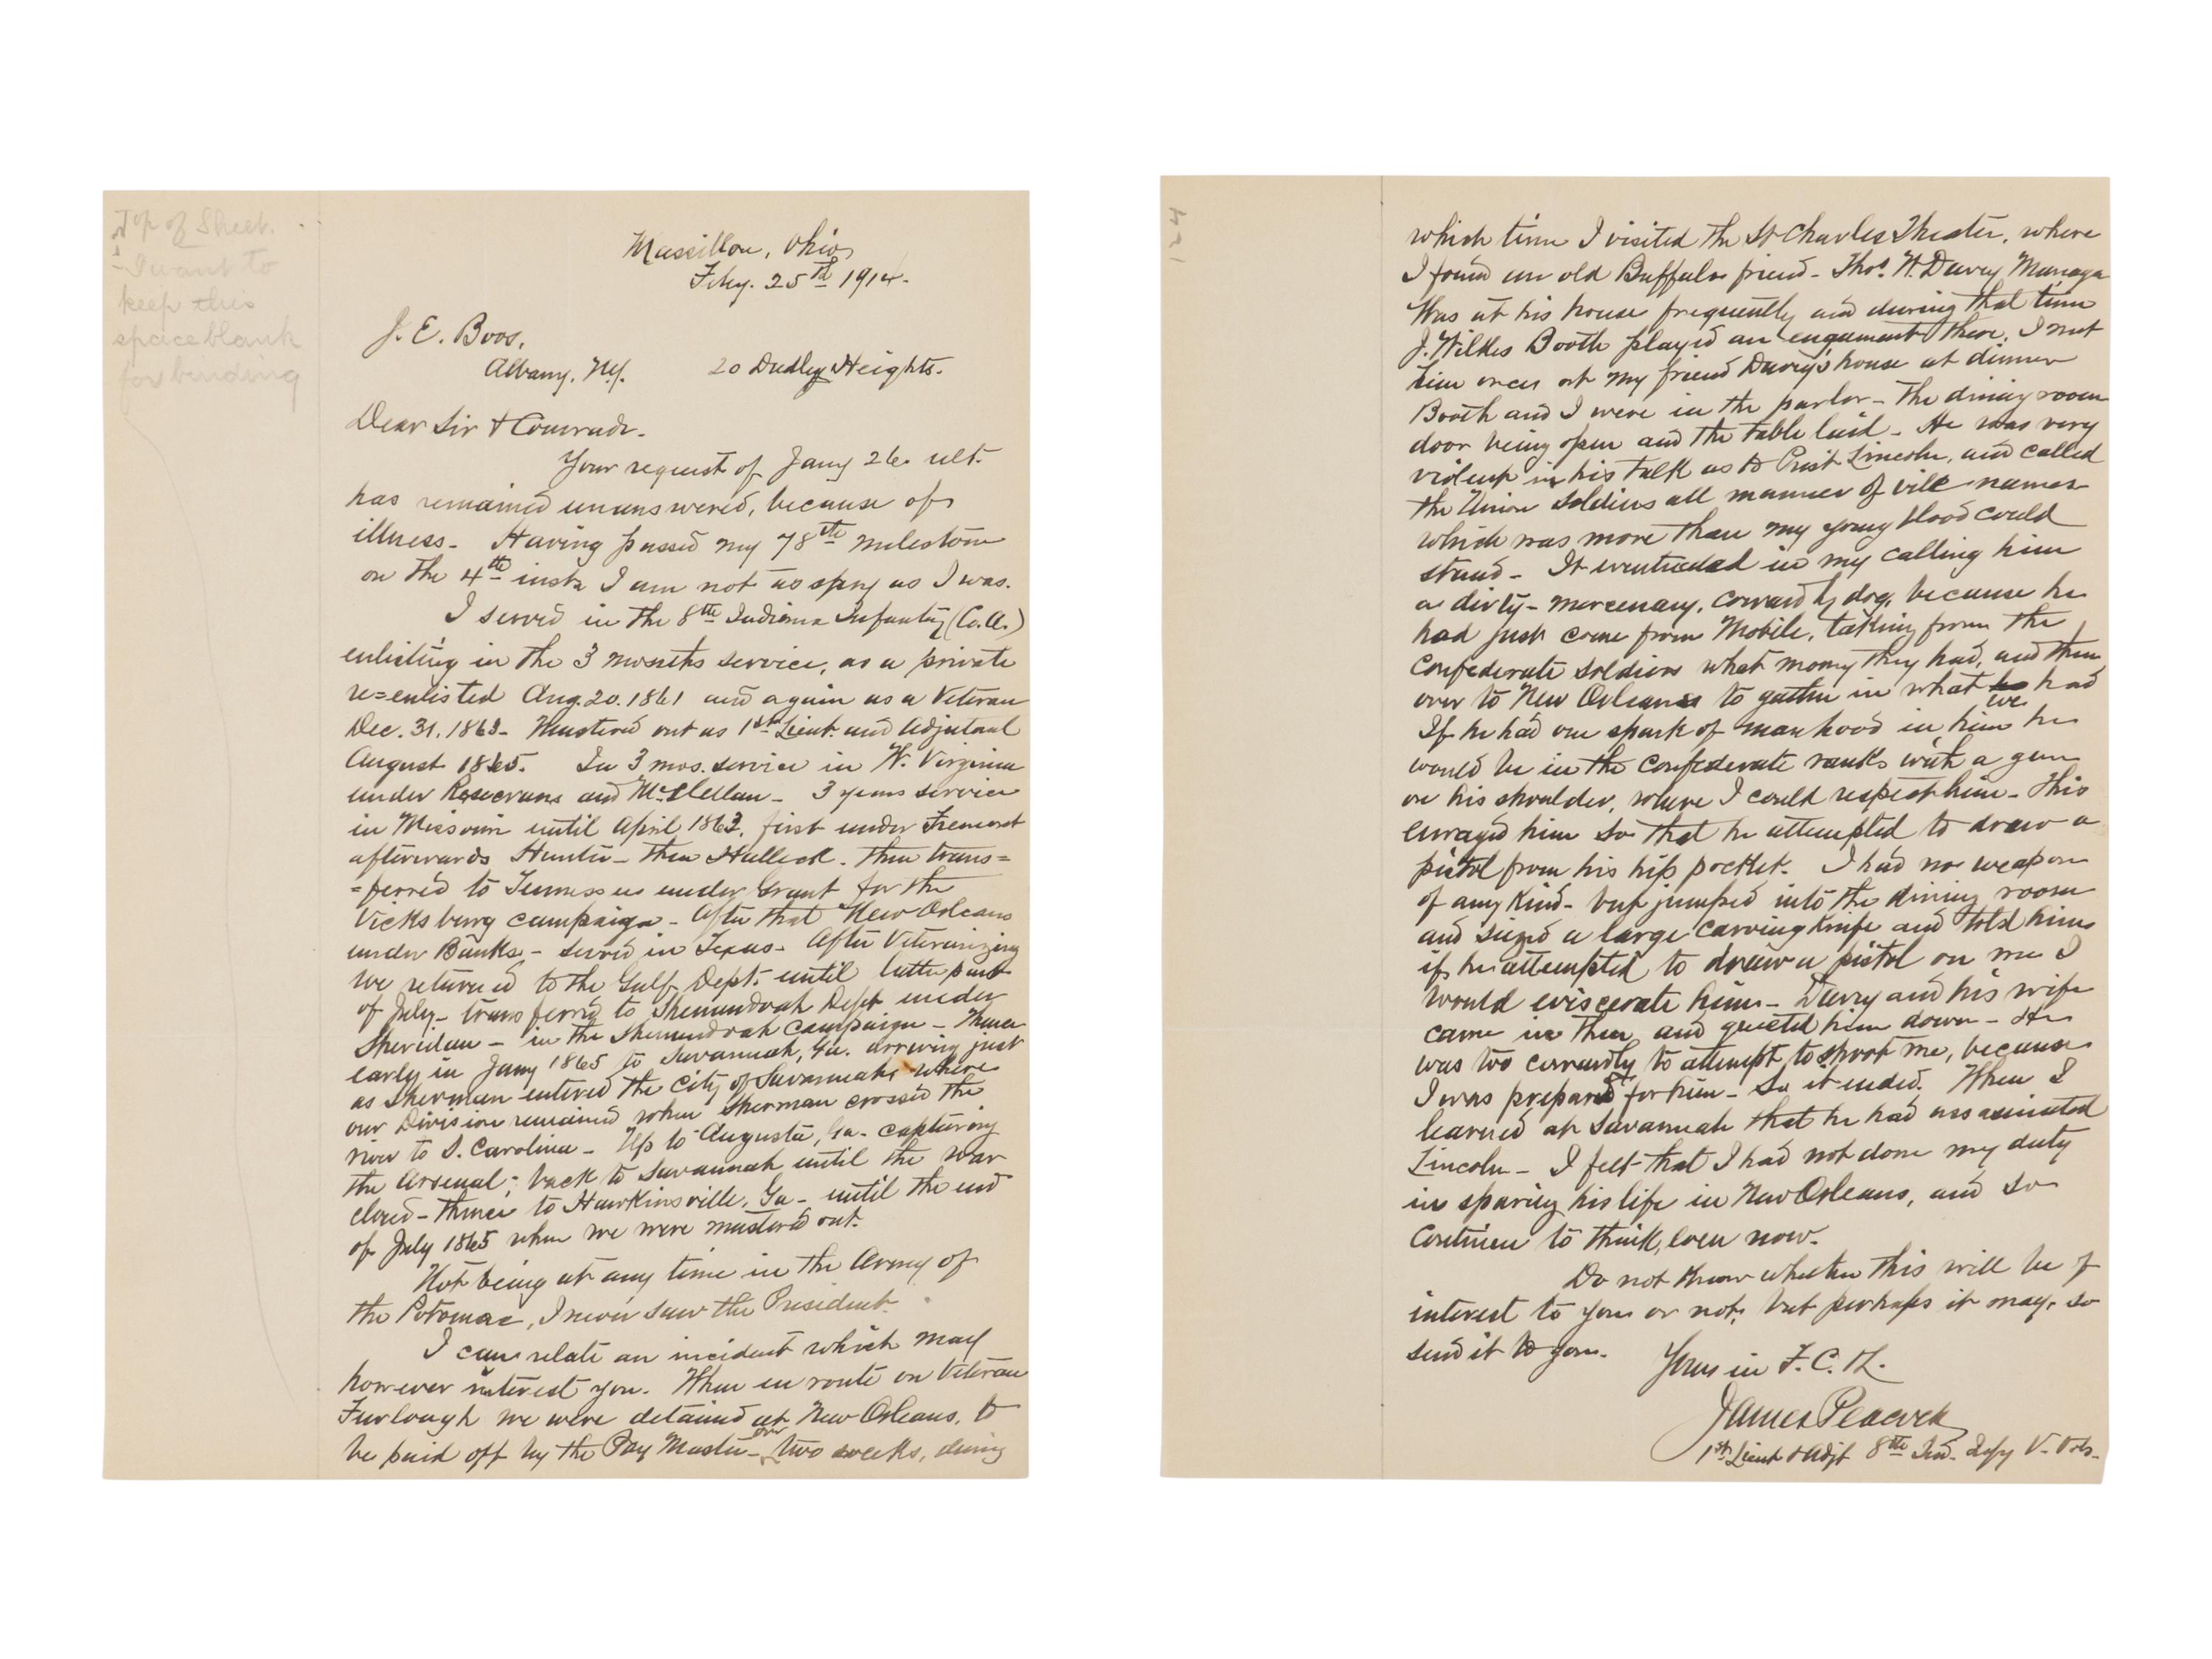 Top of Sheet.
I want to
keep this
space blank
for binding
Massillon, Ohio,
Feby. 25th 1914.
J. E. Boos,
Albany, N.Y. 20 Dudley Heights.
Dear Sir & Comrade.
Your request of Jany 26 ult.
has remained unanswered, because of
illness- Having passed my 78th milestone
on the 4th inst. I am not as spry as I was.
I served in the 8th Indiana Infantry (Co. A.)
enlisting in the 3 months service, as a private
re=enlisted Aug. 20. 1861 and again as a Veteran
Dec. 31, 1863- Mustered out as 1st Lieut. and Adjutant
August 1865. In 3 mos. service in W. Virginia
under Rosecrans and McClellan- 3 years service
in Missouri until April 1863, first under Fremont
afterwards Hunter- then Halleck. Then trans=
=ferred to Tennessee under Grant for the
Vicksburg campaign- After that New Orleans
under Banks- served in Texas- After Veteranizing
we returned to the Gulf Dept. until latter part
of July- transferred to Shenandoah Dept under
Sheridan- in the Shenandoah Campaign- Thence
early in Jany 1865 to Savannah, Ga. arriving just
as Sherman entered the city of Savannah, where
our Division remained when Sherman crossed the
river to S. Carolina- Up to Augusta, Ga- capturing
the Arsenal; back to Savannah until the war
closed- thence to Hawkinsville, Ga- until the end
of July 1865 when we were mustered out.
Not being at any time in the Army of
the Potomac, I never saw the President.
I can relate an incident which may
however interest you. When en route on Veteran
Furlough we were detained at New Orleans, to
be paid off by the Pay Master- over two weeks, during
which time I visited the St Charles Theater, where
I found an old Buffalo friend- Thos. W. Davey Manager
Was at his house frequently and during that time
J. Wilkes Booth played an engament there. I met
him once at my friend Davey's house at dinner
Booth and I were in the parlor- The dining room
door being open and the table laid- He was very
violent in his talk as to Prest Lincoln, and called
the Union Soldiers all manner of vile names
which was more than my young blood could
stand- It eventuated in my calling him
a dirty- mercenary, cowardly dog, because he
had just come from Mobile, taking from the
Confederate soldiers what money they had, and then
over to New Orleans to gather in what we had
If he had one spark of manhood in him he
would be in the Confederate ranks with a gun
on his shoulder, where I could respect him- This
enraged him so that he attempted to draw a
pistol from his hip pocket. I had no weapon
of any kind- but jumped into the dining room
and seized a large carving knife and told him
if he attempted to draw a pistol on me I
would eviscerate him- Davey and his wife
came in then and quieted him down- He
was too cowardly to attempt to shoot me, because
I was prepared for him- So it ended. When I
learned at Savannah that he had assasinated
Lincoln- I felt that I had not done my duty
in sparing his life in New Orleans, and so
Continue to think, even now.
Do not know whether this will be of
interest to you or not; but perhaps it may, so
send it to you.
Yours in F. C. & L.
James Peacock
1st Lieut & Adjt 8th Ind. Infy V. Vols.